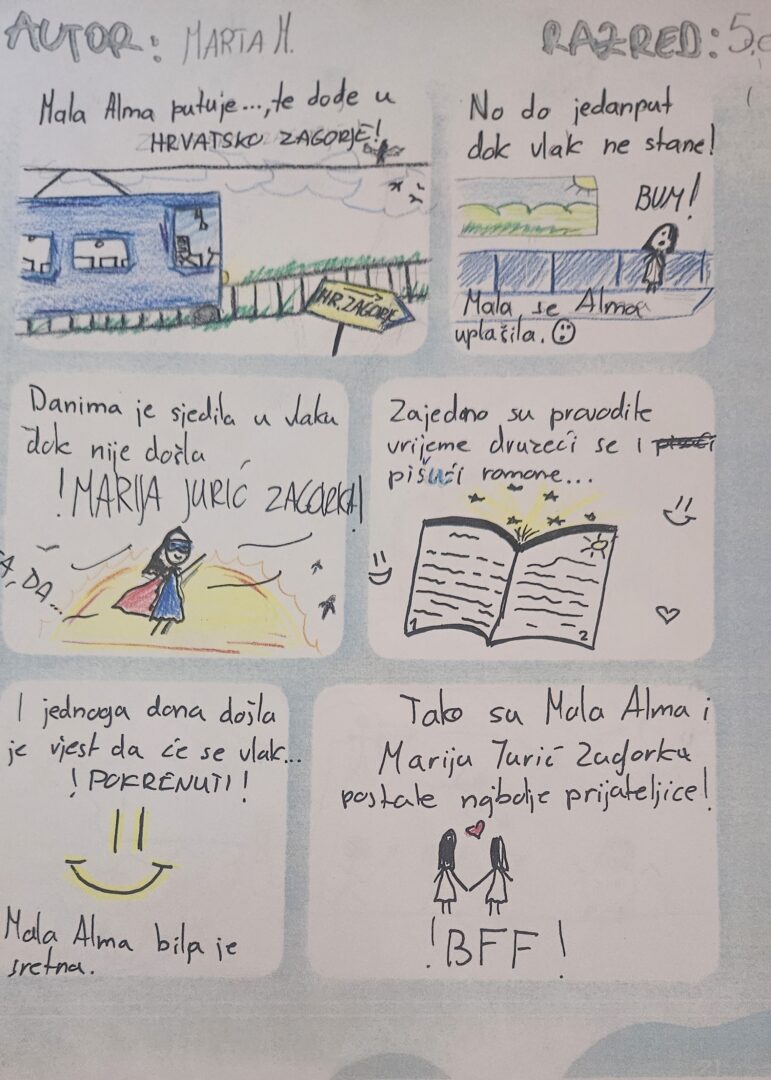 AUTOR: MARTA M.
RAZRED: 5.c
Mala Alma putuje..., te dođe u
HRVATSKO ZAGORJE!
HR. ZAGORJE
No do jedanput
dok vlak ne stane!
BUM!
Mala se Alma
uplašila.
Danima je sjedila u vlaku
dok nije došla
!MARIJA JURIĆ ZAGORKA!
DA...
Zajedno su provodile
vrijeme družeći se i
pišući romane...
1
2
I jednoga dana došla
je vjest da će se vlak...
!POKRENUTI!
Mala Alma bila je
sretna.
Tako su Mala Alma i
Marija Jurić Zagorka
postale najbolje prijateljice!
!BFF!